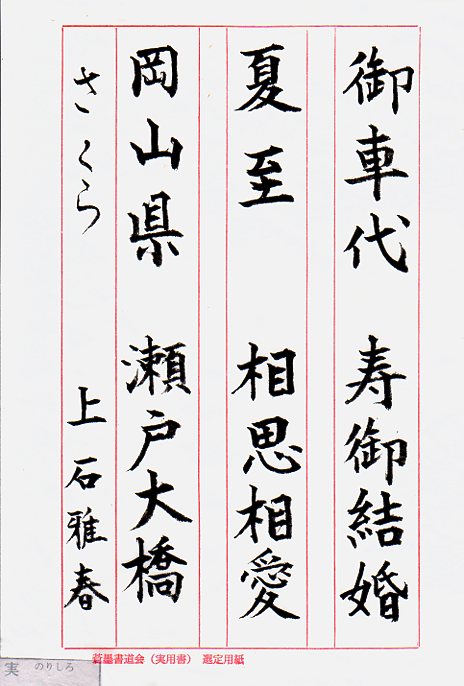 御車代 寿御結婚
夏至 相思相愛
岡山県 瀬戸大橋
さくら 上石雅春
蒼墨書道会（実用書） 選定用紙
実 のりしろ